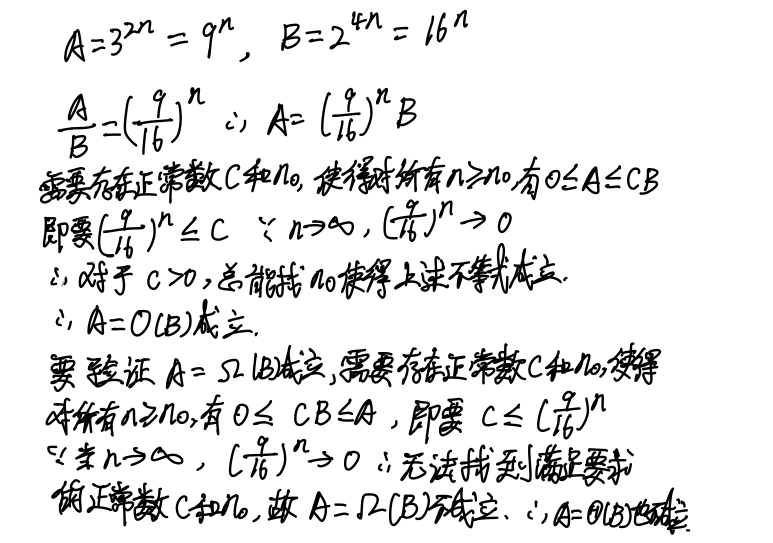 A=3^{2n} = 9^n, B=2^{4n} = 16^n
A/B=(9/16)^n ∴ A= (9/16)^n B
需要存在正常数C和n₀, 使得对所有n≥n₀,有0≤A≤CB
即要(9/16)^n ≤ C ∵ n→∞, (9/16)^n → 0
∴ 对于 c>0, 总能找n₀使得上述不等式成立.
∴ A=O(B)成立.
要验证 A= Ω(B)成立,需要存在正常数C和n₀,使得
对所有n≥n₀,有 0≤ CB≤A , 即要 C≤(9/16)^n
∵当n→∞, (9/16)^n→0 ∴无法找到满足要求
的正常数C和n₀, 故 A=Ω(B)不成立. ∴A=Θ(B)也不成立.